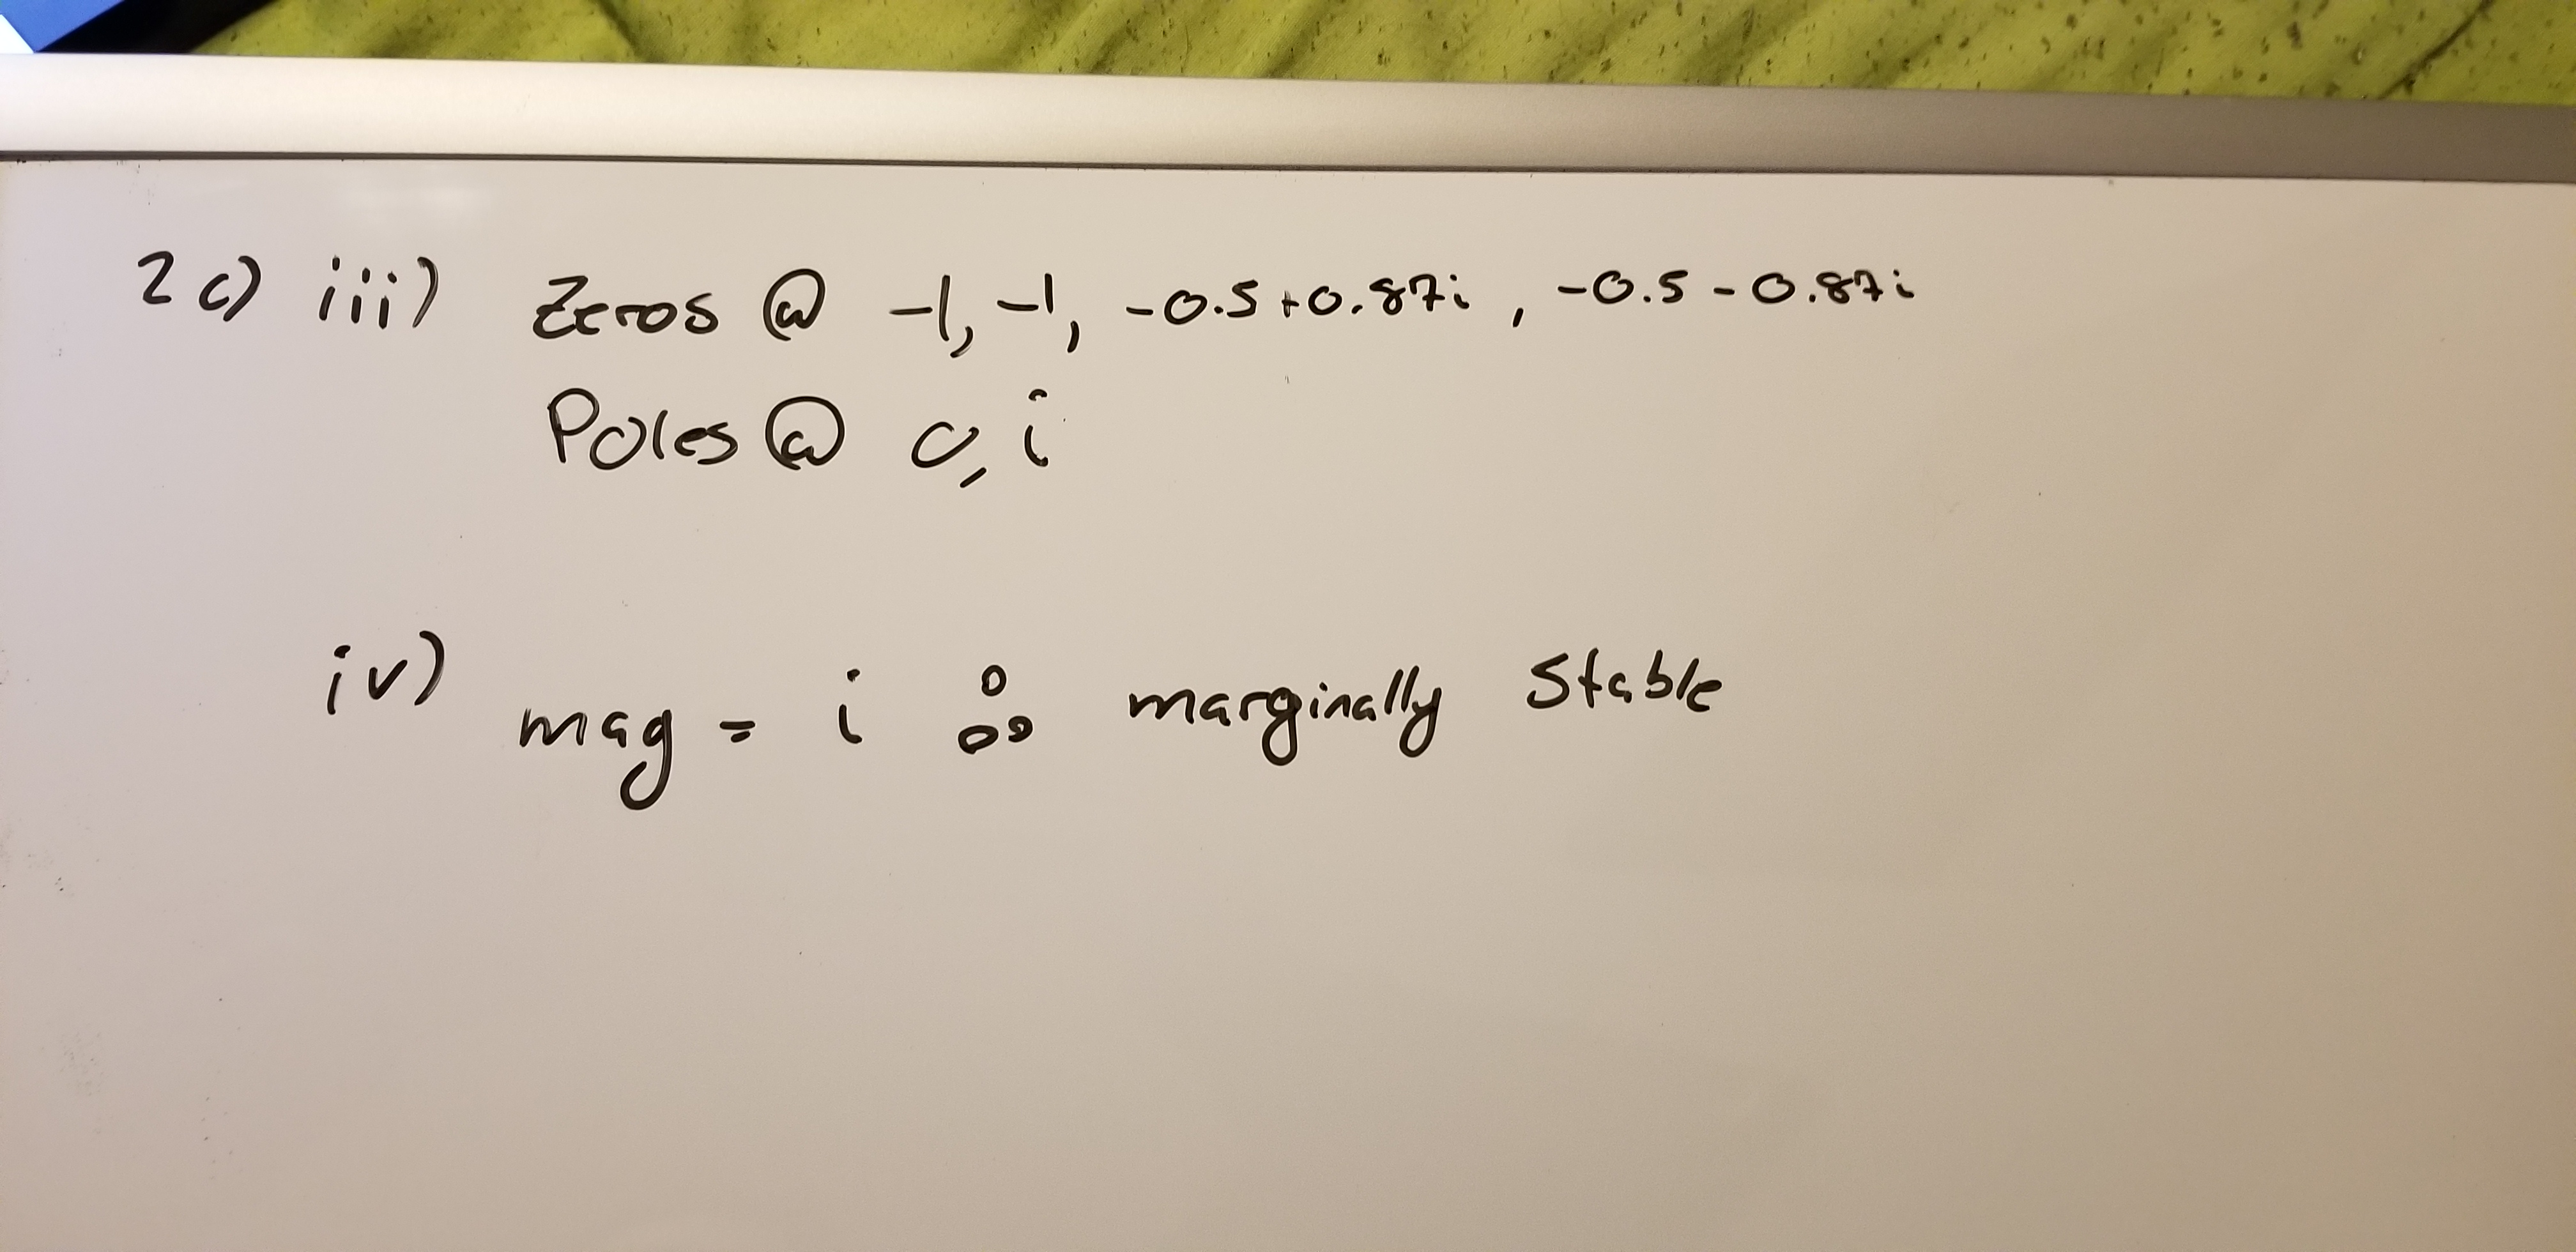 2 c) iii) Zeros @ -1, -1, -0.5+0.87i, -0.5-0.87i
Poles @ 0, i
iv) mag = i ∴ marginally stable